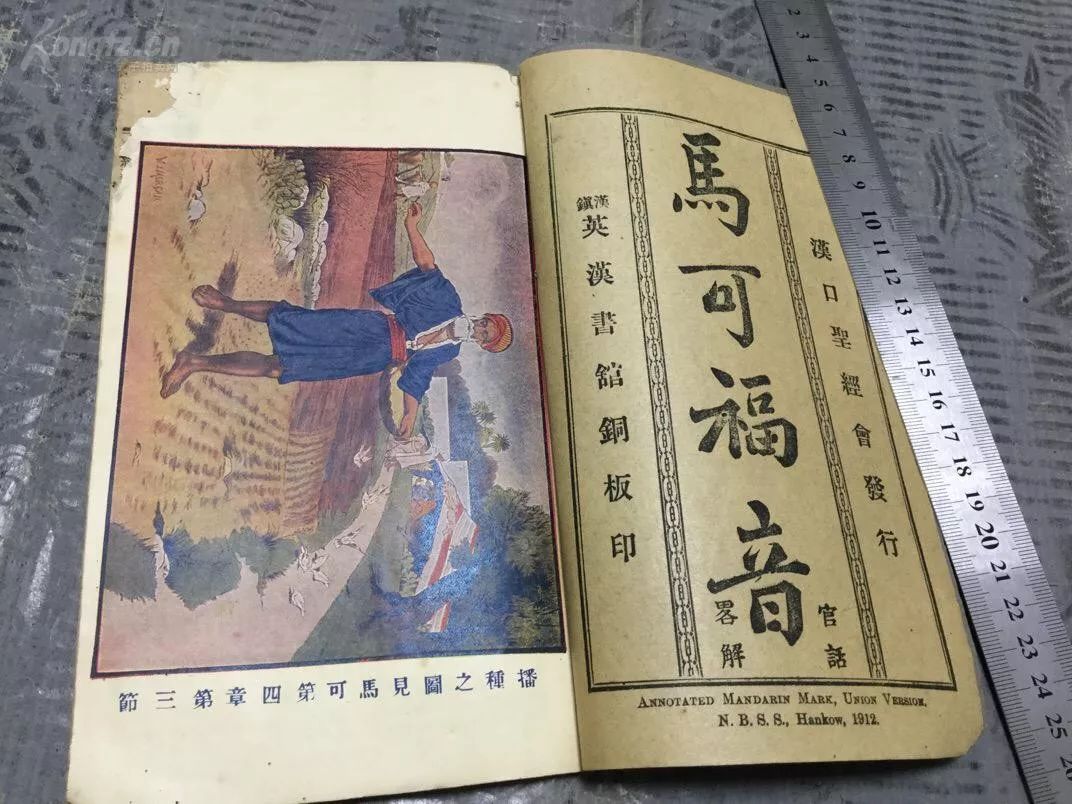 Kongfz.cn
漢口聖經會發行
馬可福音
官話
畧解
漢鎮英漢書館銅板印
ANNOTATED MANDARIN MARK, UNION VERSION,
N. B. S. S., Hankow, 1912.
播種之圖見馬可第四章第三節
2 3 4 5 6 7 8 9 10 11 12 13 14 15 16 17 18 19 20 21 22 23 24 25 26